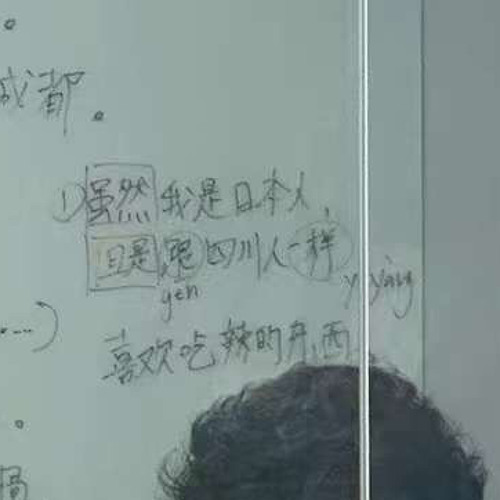 成都。
①虽然我是日本人，
但是跟四川人一样
gēn yíyàng
喜欢吃辣的东西